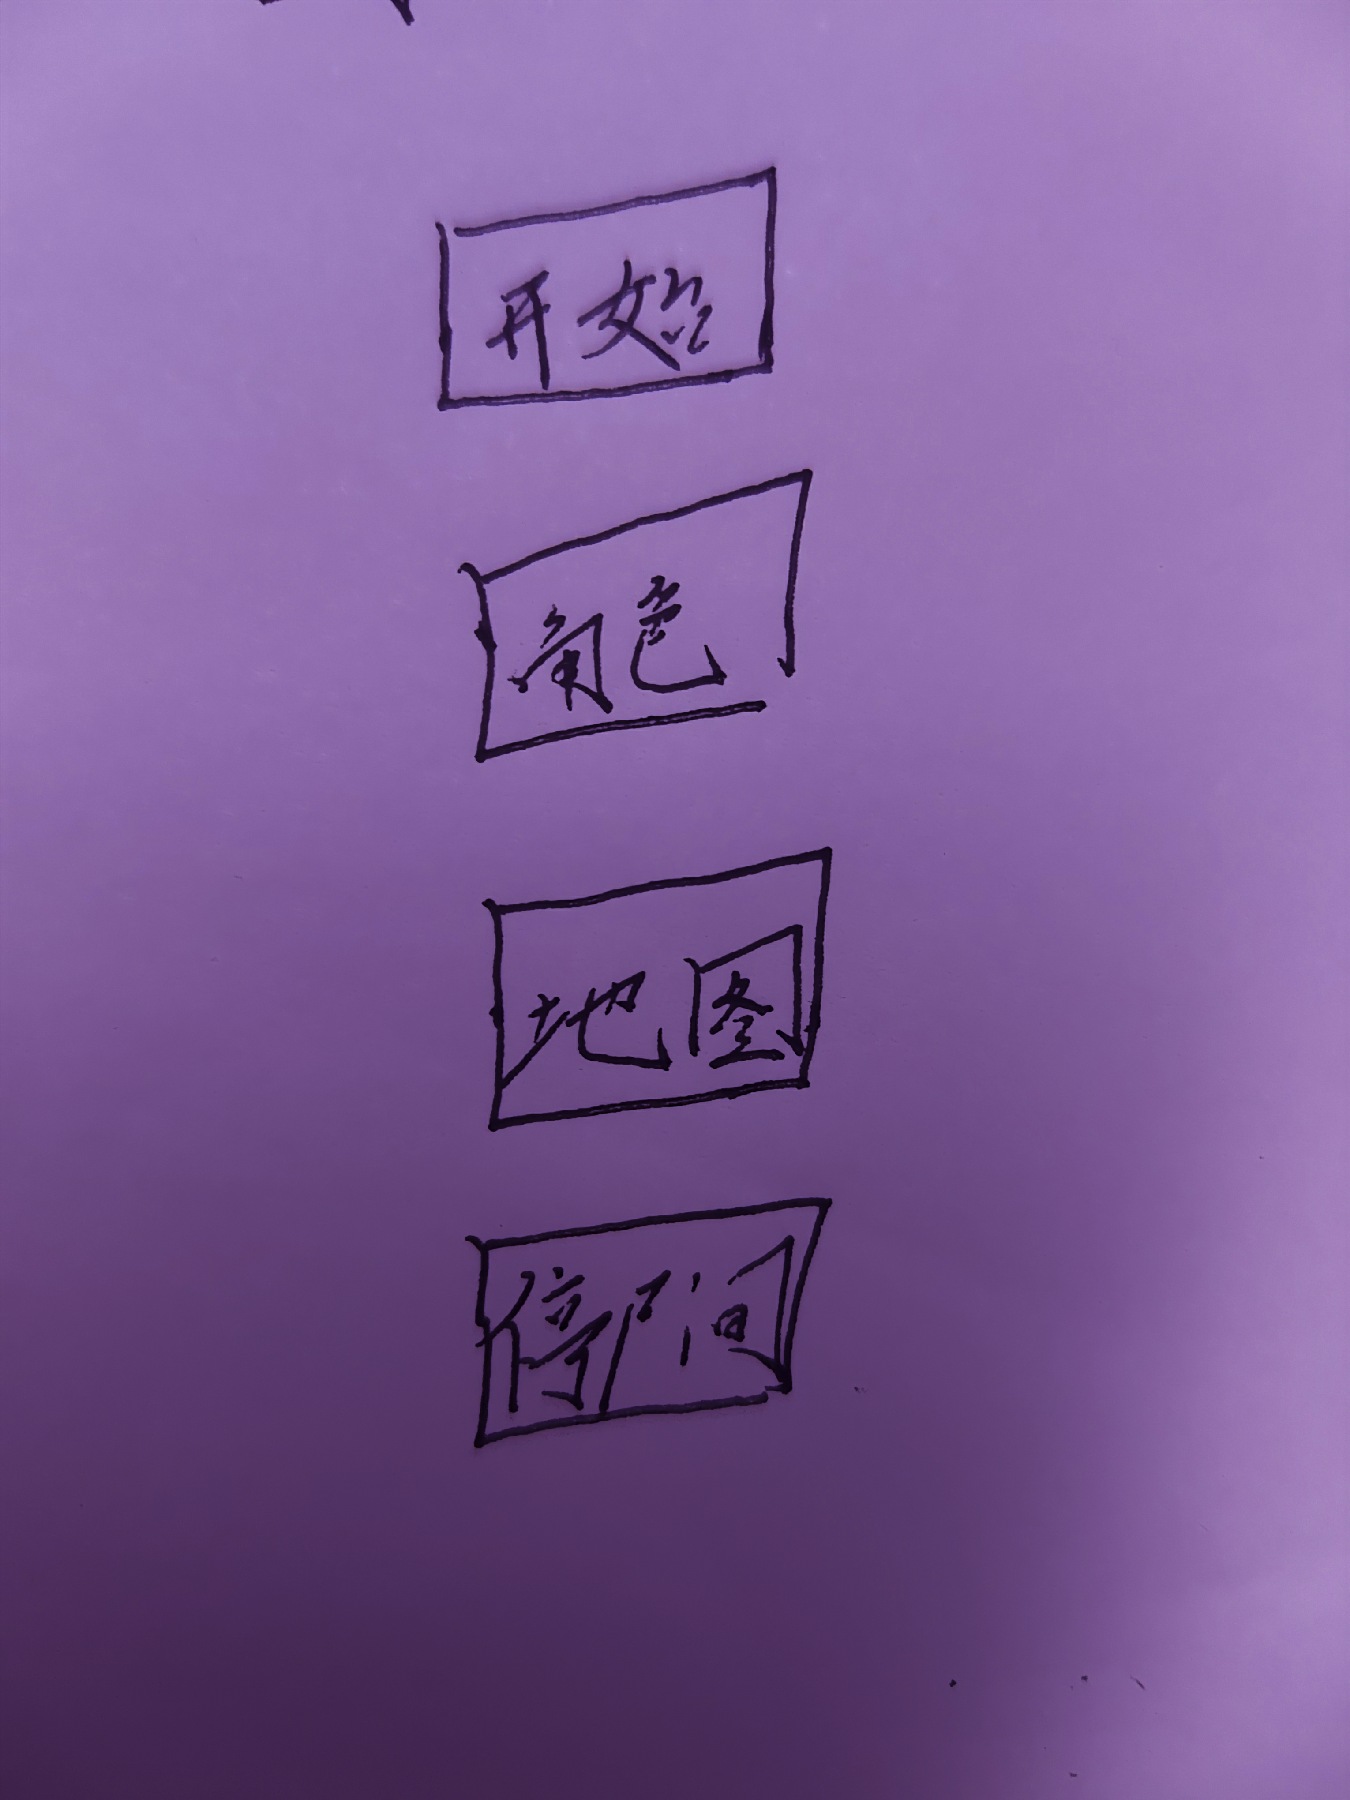 开始
角色
地图
停尸间